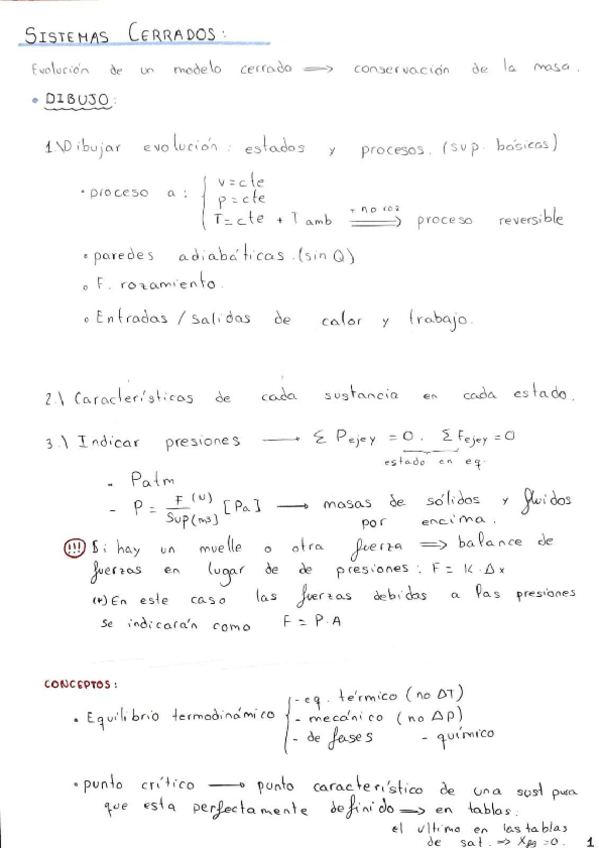 SISTEMAS CERRADOS:
Evolución de un modelo cerrado ⟹ conservación de la masa.
• DIBUJO:
1.\Dibujar evolución: estados y procesos. (sup. básicas)
• proceso a: { v=cte
p=cte
T=cte + T amb ⟹ (+ no roz) proceso reversible
• paredes adiabáticas. (sin Q)
• F. rozamiento.
• Entradas / salidas de calor y trabajo.
2.\ Características de cada sustancia en cada estado.
3.\ Indicar presiones ⟶ Σ Pejey = 0. Σ Fejey = 0
estado en eq.
- Patm
- P = F (N) / Sup (m3) [Pa] ⟶ masas de sólidos y fluidos
por encima.
(!!!) Si hay un muelle o otra fuerza ⟹ balance de
fuerzas en lugar de de presiones: F = K · Δx
(*) En este caso las fuerzas debidas a las presiones
se indicarán como F = P · A
CONCEPTOS:
• Equilibrio termodinámico { - eq. térmico (no ΔT)
- mecánico (no Δp)
- de fases - químico
• punto crítico ⟶ punto característico de una sust pura
que esta perfectamente definido ⟶ en tablas.
el ultimo en las tablas
de sat. ⟹ Xfg = 0. 1